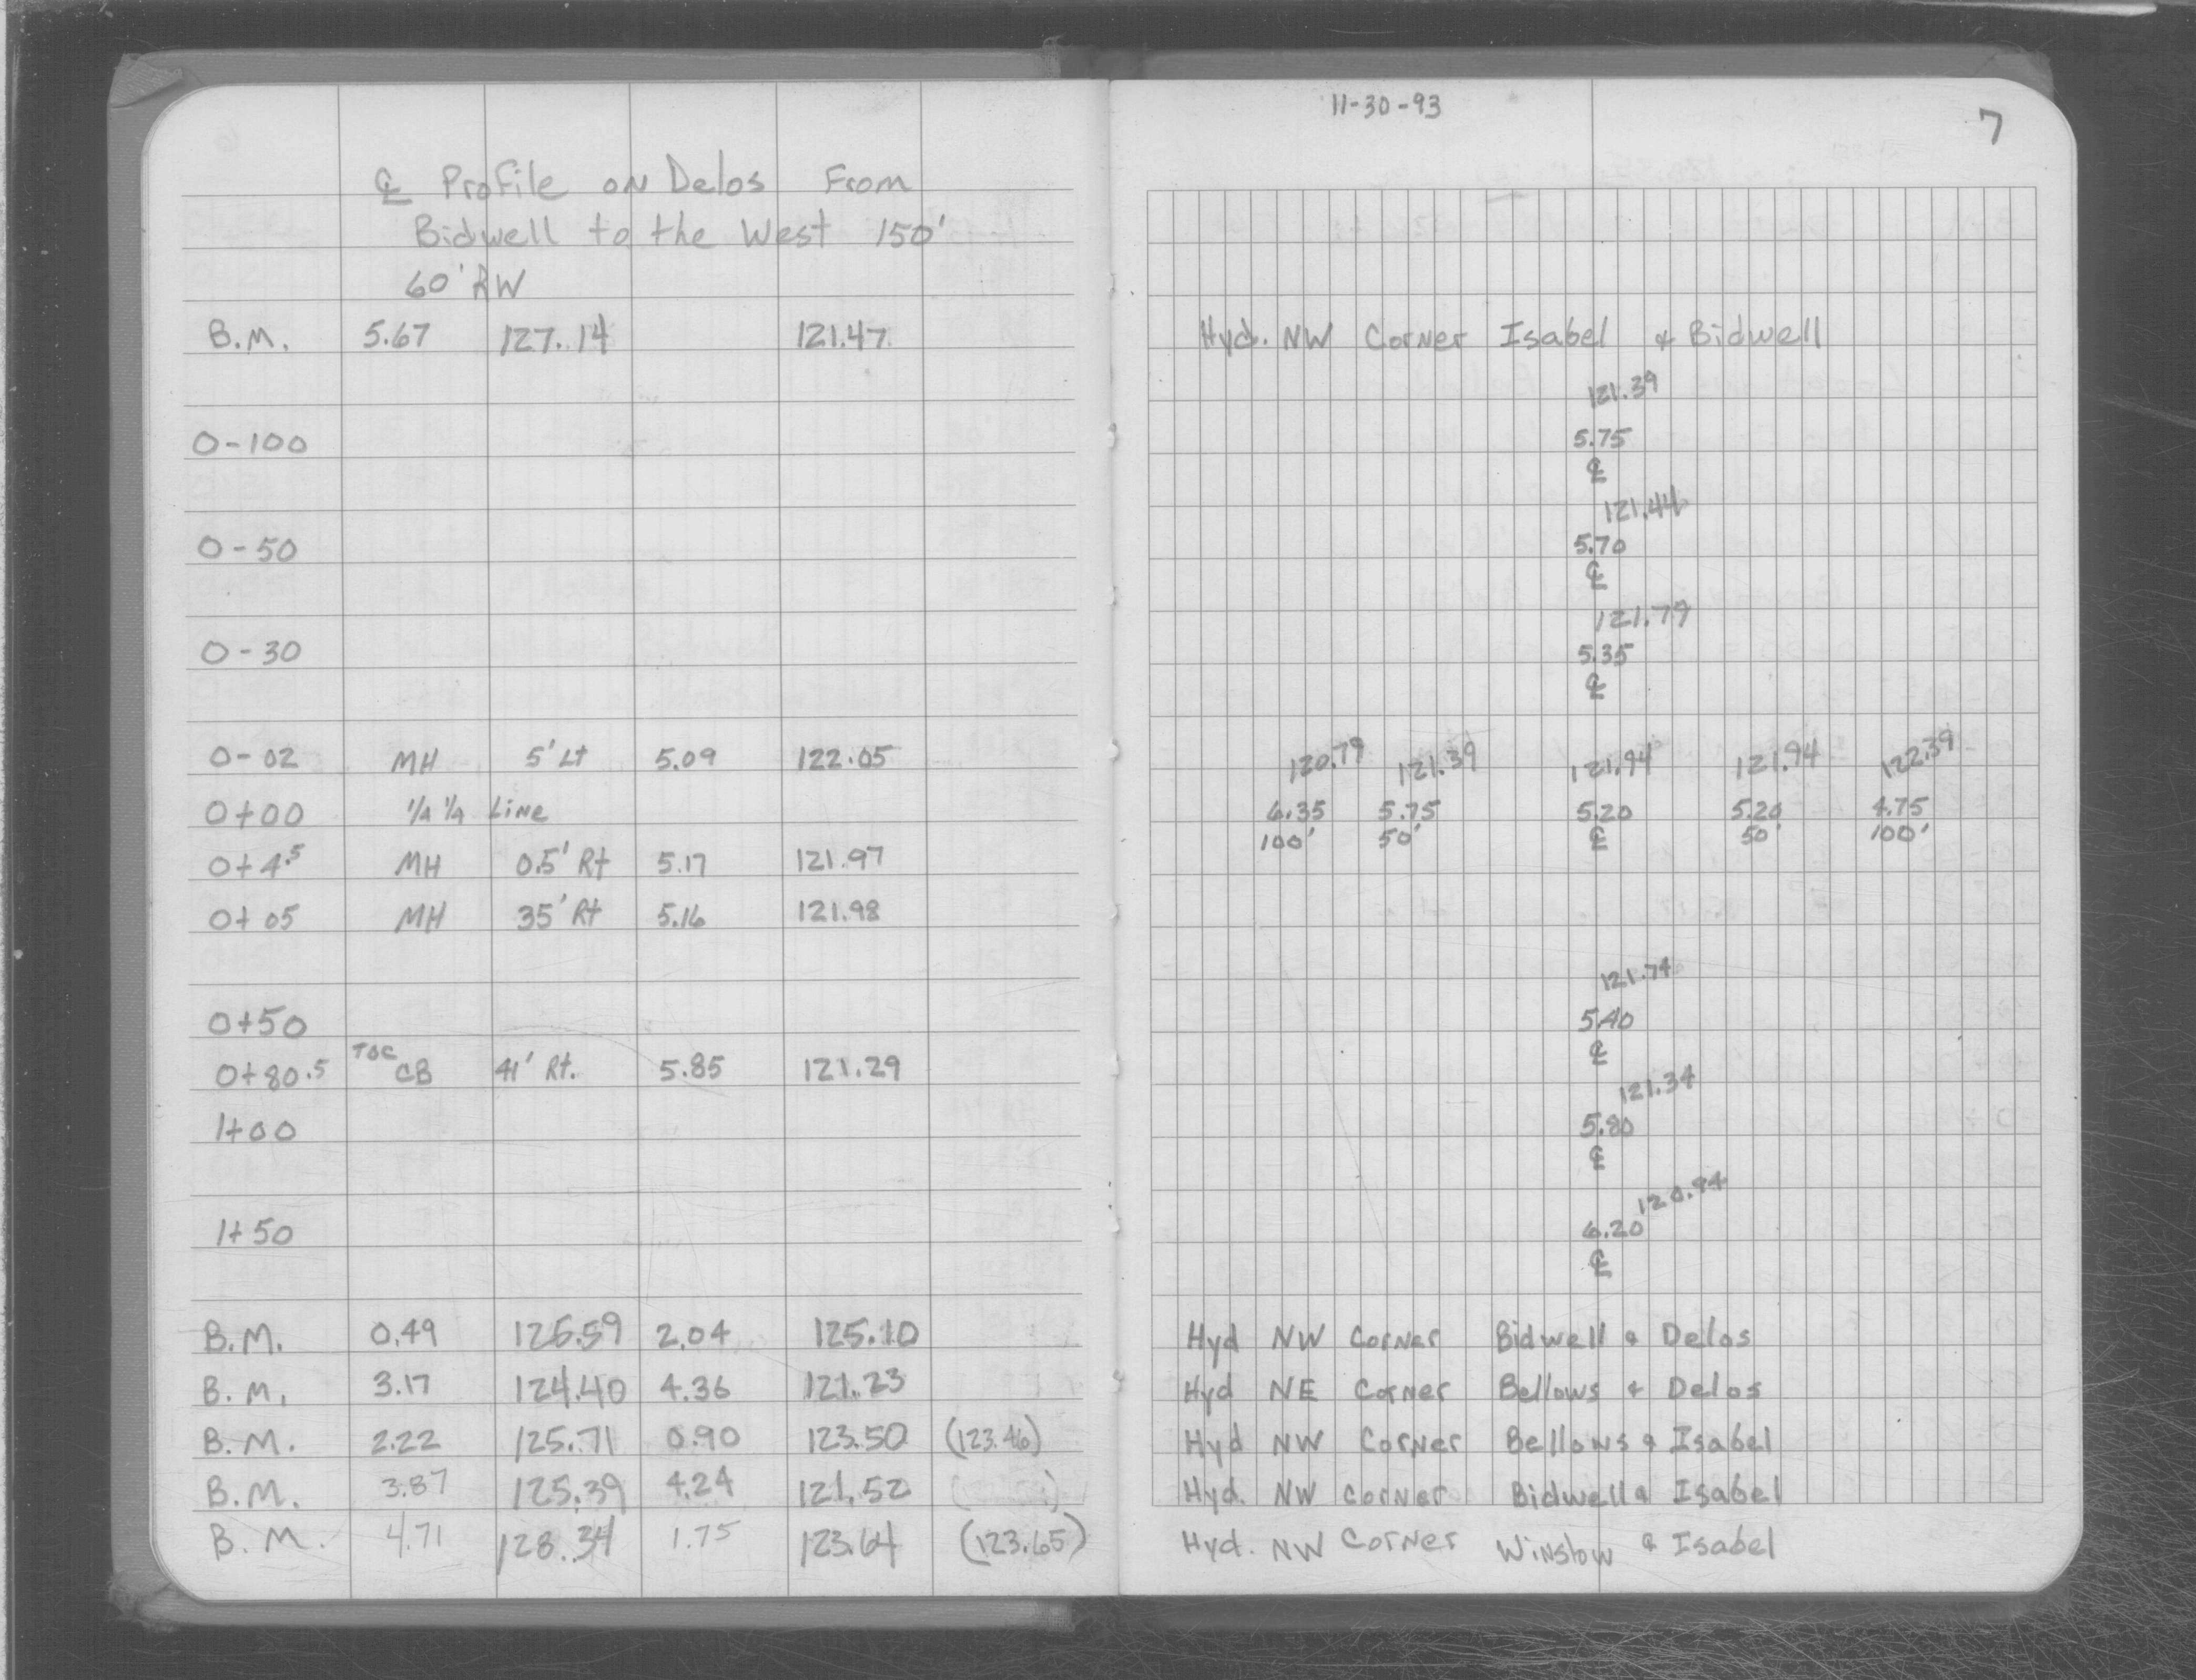 ℄ Profile on Delos From
Bidwell to the West 150'
60' RW
B.M. 5.67 127.14 121.47
0-100
0-50
0-30
0-02 MH 5' Lt 5.09 122.05
0+00 1/4 1/4 Line
0+4.5 MH 0.5' Rt 5.17 121.97
0+05 MH 35' Rt 5.16 121.98
0+50
0+80.5 TOC CB 41' Rt. 5.85 121.29
1+00
1+50
B.M. 0.49 125.59 2.04 125.10
B.M. 3.17 124.40 4.36 121.23
B.M. 2.22 125.71 0.90 123.50 (123.46)
B.M. 3.87 125.39 4.24 121.52
B.M. 4.71 128.34 1.75 123.64 (123.65)
11-30-93
7
Hyd. NW Corner Isabel & Bidwell
121.39
5.75
℄
121.44
5.70
℄
121.79
5.35
℄
120.79 121.39 121.94 121.94 122.39
6.35 5.75 5.20 5.20 4.75
100' 50' ℄ 50' 100'
121.74
5.40
℄
121.34
5.80
℄
120.94
6.20
℄
Hyd NW Corner Bidwell & Delos
Hyd NE Corner Bellows & Delos
Hyd NW Corner Bellows & Isabel
Hyd. NW Corner Bidwell & Isabel
Hyd. NW Corner Winslow & Isabel